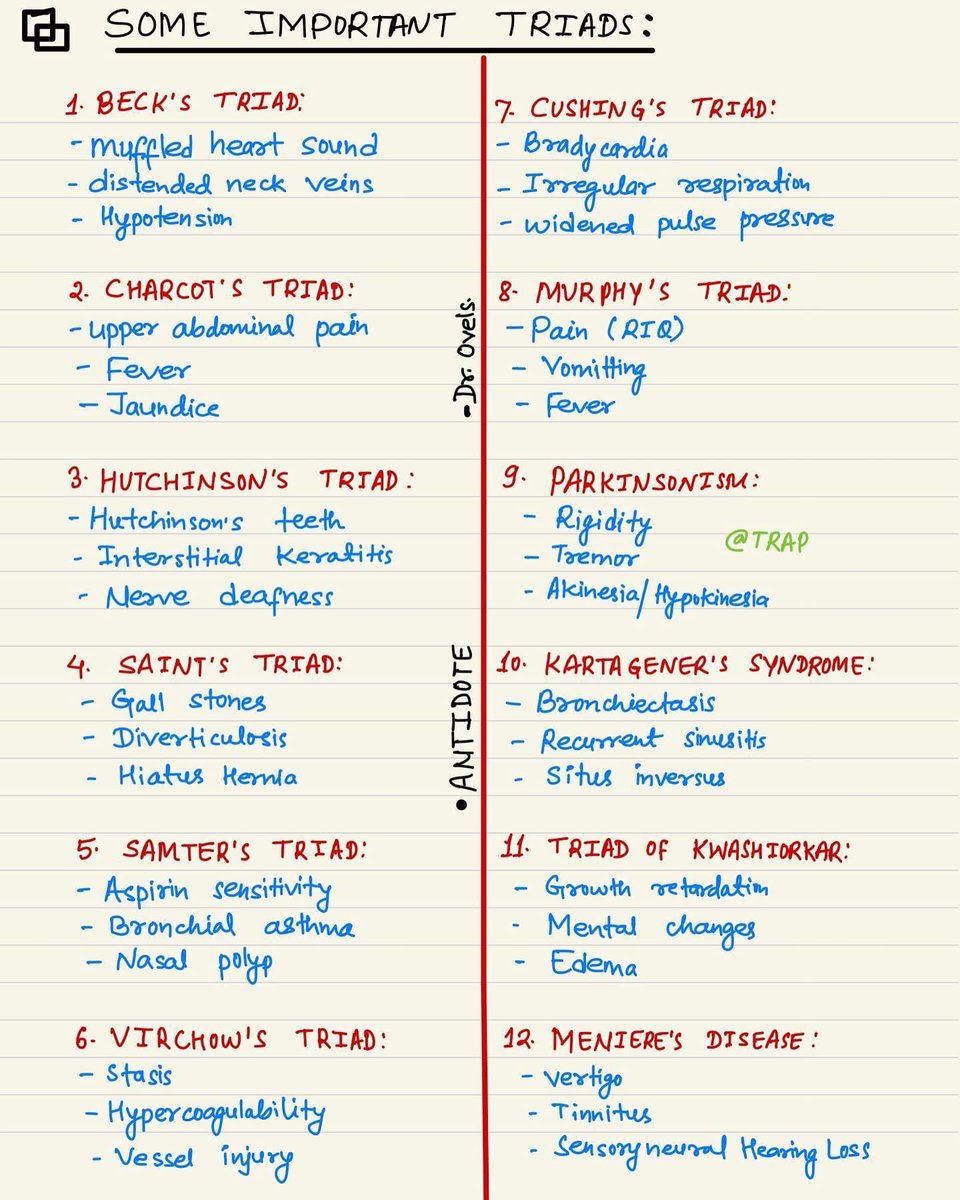 SOME IMPORTANT TRIADS:
1. BECK'S TRIAD:
- Muffled heart sound
- distended neck veins
- Hypotension
2. CHARCOT'S TRIAD:
- upper abdominal pain
- Fever
- Jaundice
3. HUTCHINSON'S TRIAD:
- Hutchinson's teeth
- Interstitial Keratitis
- Nerve deafness
4. SAINT'S TRIAD:
- Gall stones
- Diverticulosis
- Hiatus Hernia
5. SAMTER'S TRIAD:
- Aspirin sensitivity
- Bronchial asthma
- Nasal polyp
6. VIRCHOW'S TRIAD:
- Stasis
- Hypercoagulability
- Vessel injury
- Dr. Ovels.
• ANTIDOTE
7. CUSHING'S TRIAD:
- Bradycardia
- Irregular respiration
- widened pulse pressure
8. MURPHY'S TRIAD:
- Pain (RIQ)
- Vomitting
- Fever
9. PARKINSONISM:
- Rigidity
@TRAP
- Tremor
- Akinesia/Hypokinesia
10. KARTAGENER'S SYNDROME:
- Bronchiectasis
- Recurrent sinusitis
- Situs inversus
11. TRIAD OF KWASHIORKAR:
- Growth retardation
- Mental changes
- Edema
12. MENIERE'S DISEASE:
- Vertigo
- Tinnitus
- Sensoryneural Hearing Loss